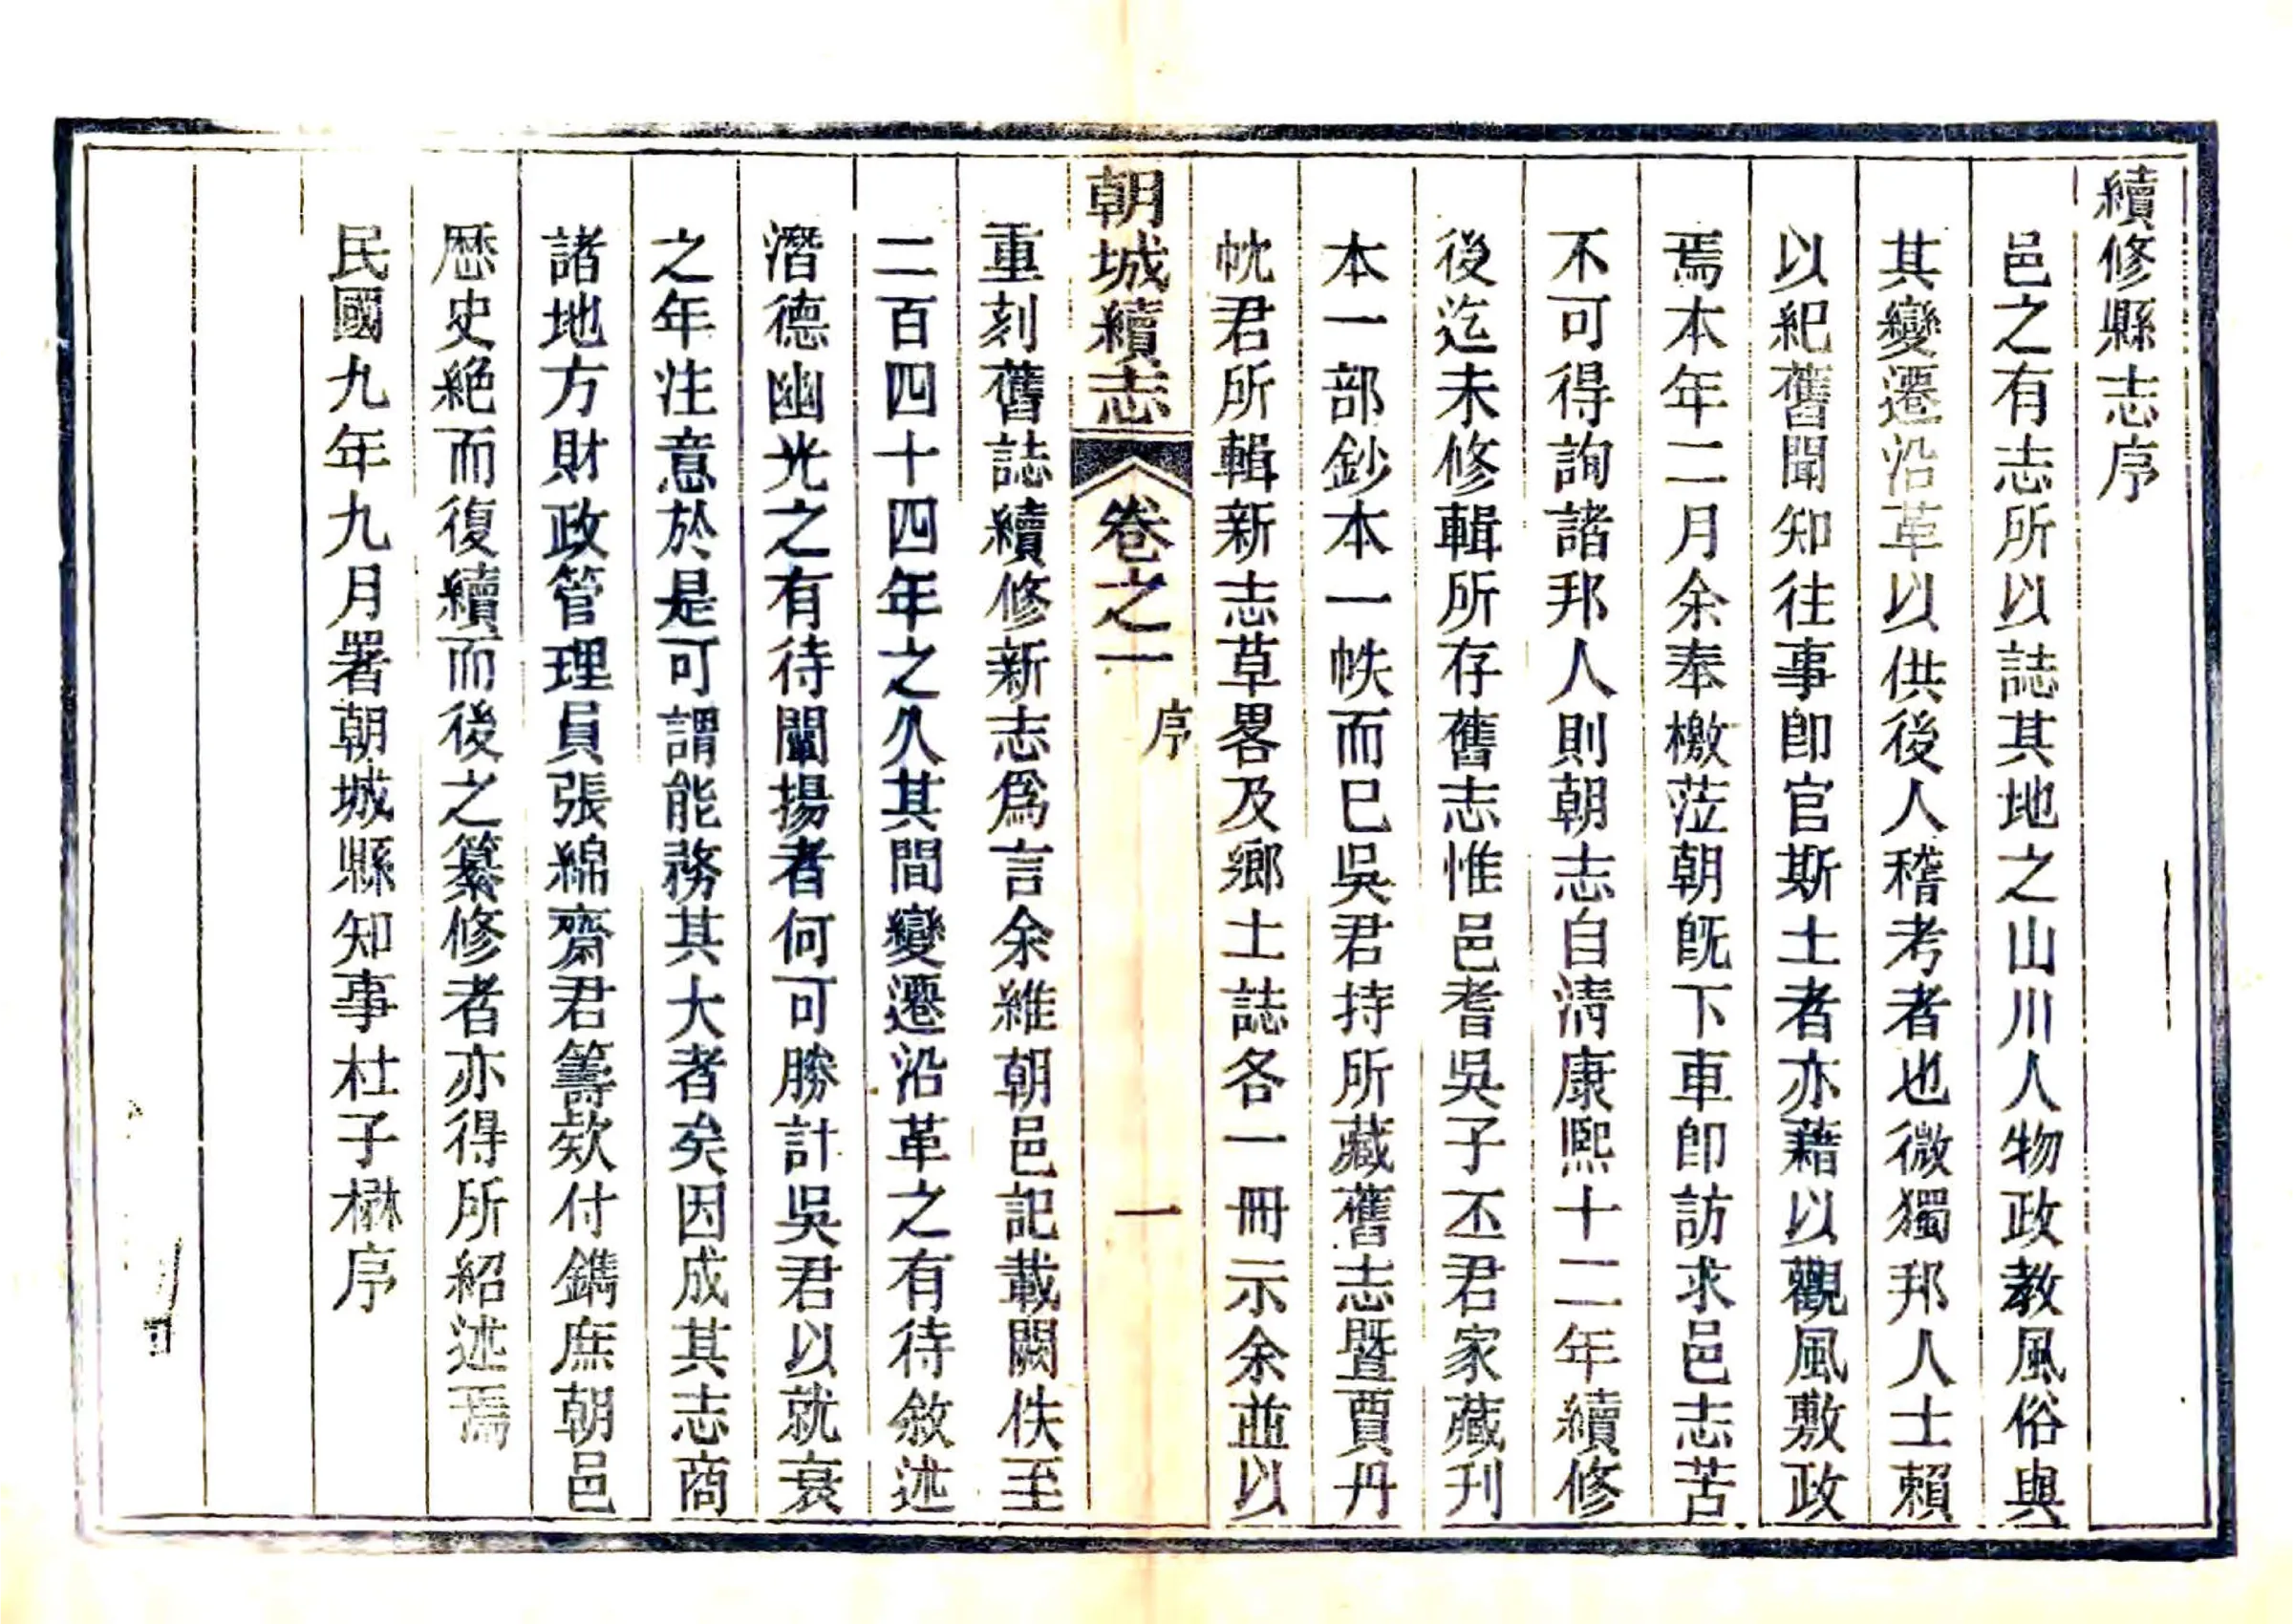 續修縣志序
邑之有志所以誌其地之山川人物政教風俗與
其變遷沿革以供後人稽考者也微獨邦人士賴
以紀舊聞知往事卽官斯土者亦藉以觀風敷政
焉本年二月余奉檄蒞朝旣下車卽訪求邑志苦
不可得詢諸邦人則朝志自淸康熙十二年續修
後迄未修輯所存舊志惟邑耆吳子丕君家藏刊
本一部鈔本一帙而已吳君持所藏舊志暨賈丹
忱君所輯新志草畧及鄉土誌各一冊示余並以
朝城續志 卷之一 序 一
重刻舊誌續修新志爲言余維朝邑記載闕佚至
二百四十四年之久其間變遷沿革之有待敘述
潛德幽光之有待闡揚者何可勝計吳君以就衰
之年注意於是可謂能務其大者矣因成其志商
諸地方財政管理員張綿齋君籌欵付鐫庶朝邑
歷史絕而復續而後之纂修者亦得所紹述焉
民國九年九月署朝城縣知事杜子楙序